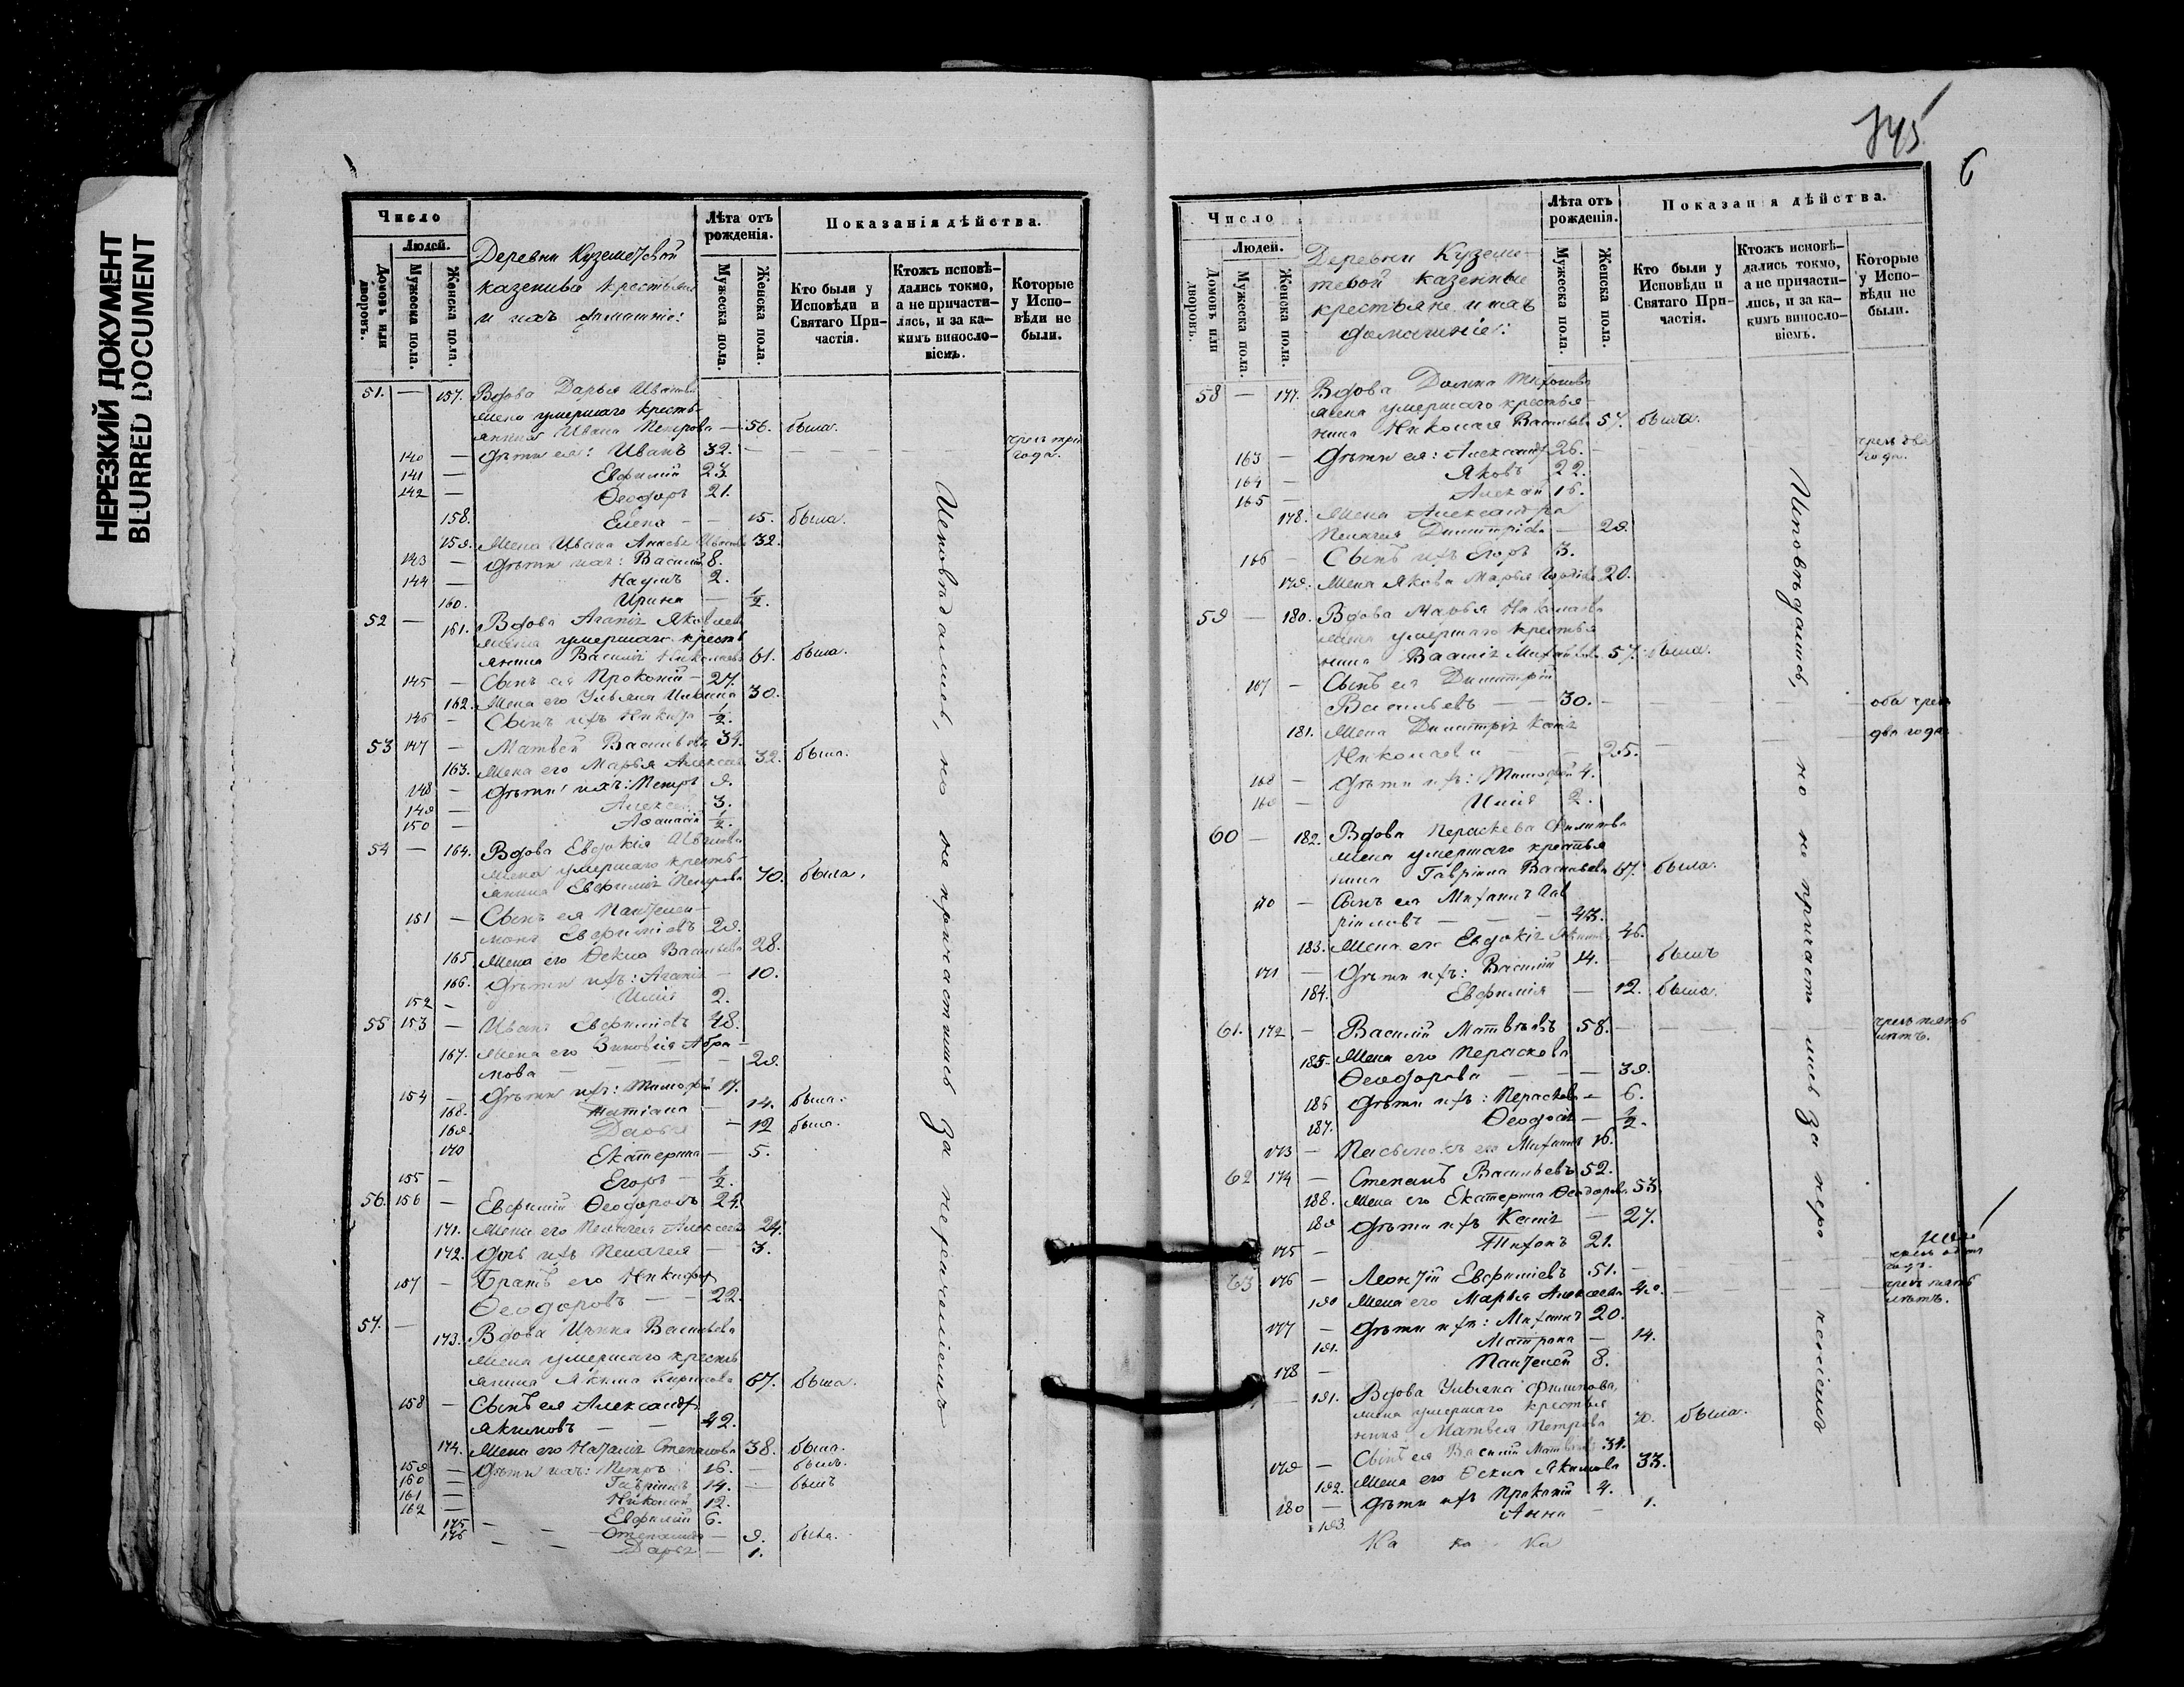 НЕРЕЗКИЙ ДОКУМЕНТ
BLURRED DOCUMENT
Число
Людей.
Домовъ или дворовъ.
Мужеска пола.
Женска пола.
Деревни
казенные крестьяне
и ихъ домашніе:
Лѣта отъ рожденія.
Мужеска пола.
Женска пола.
Показанія дѣйства.
Кто были у Исповѣди и Святаго Причастія.
Ктожъ исповѣдались токмо, а не причастились, и за какимъ винословіемъ.
Которые у Исповѣди не были.
51. — 157. Вдова Дарья Иванова
жена умершаго кресть-
янина Ивана Петрова — 56. была.
140 — дѣти ея: Иванъ 32. чрезъ три года.
141 — Евфимій 23.
142 — Ѳеодоръ 21.
158. Елена — 15. была.
159. Жена Ивана 32.
143 — дѣти ихъ: Василій 8.
144 — Наумъ 2.
160. Ирина — 1/2.
52 — 161. Вдова Агапія Яковлева
жена умершаго кресть
янина Василія Николаева 61. была.
145 — Сынъ ея Прокопій — 27.
162. Жена его Ульяна 30.
146 — Сынъ ихъ Никита 1/2.
53 147 — Матвей Васильевъ 34.
163. Жена его Марья Алексеева 32. была.
148 — дѣти ихъ: Петръ 9.
149 — Алексей 3.
150 — Аѳанасій 1/2.
54 — 164. Вдова Евдокія Иванова
жена умершаго кресть-
янина Евфимія Петрова 70. была.
151 — Сынъ ея Пантелей-
монъ Евфиміевъ 29.
165. Жена его Ѳекла Васильева 28.
166. дѣти ихъ: Агапія — 10.
152 — Илія 2.
55 153 — Иванъ Евфиміевъ 48.
167. Жена его Зиновія Абра-
мова — 29.
154 — дѣти ихъ: Тимофей 17.
168. Татіана — 14. была.
169. Дарья — 12 была.
170 Екатерина — 5.
155 — Егоръ — 1/2.
56. 156 — Евфимій Ѳеодоровъ 24.
171. Жена его Пелагея Алексеева 24.
172. дочь ихъ Пелагея — 3.
157 — Братъ его Никифоръ
Ѳеодоровъ — 22.
57. — 173. Вдова Васильева
жена умершаго кресть
янина Якима Кирилова 67. была.
158 — Сынъ ея Александръ
Якимовъ — 42.
174. Жена его Наталія Степанова 38. была.
159 — дѣти ихъ: Петръ 16. — былъ.
160 — Гавріилъ 14. — былъ
161 — Николай 12.
162 — Евфимій 6.
175 — Степанида — 9. была.
176 — Дарья — 1.
Исповѣдались, но не причастились за нераченіемъ
745
6
Число
Людей.
Домовъ или дворовъ.
Мужеска пола.
Женска пола.
Деревни Куземе-
тевой казенные
крестьяне и ихъ
домашніе:
Лѣта отъ рожденія.
Мужеска пола.
Женска пола.
Показания дѣйства.
Кто были у Исповѣди и Святаго Причастія.
Ктожъ исповѣдались токмо, а не причастились, и за какимъ винословіемъ.
Которые у Исповѣди не были.
58 — 177. Вдова Домна
жена умершаго крестья-
нина Николая Васильева 57. была.
163 — дѣти ея: Александръ 26. чрезъ два года.
164 — Яковъ 22.
165 — Алексей 16.
178. Жена Александра
Пелагея Димитріева — 29.
166 — Сынъ ихъ Егоръ 3.
179. Жена Якова Марья 20.
59 — 180. Вдова Марья Николаева
жена умершаго крестья
нина Василія Михайлова 57. была.
167 — Сынъ ея Димитрій
Васильевъ — 30. — оба чрезъ
181. Жена Димитрія
Николаева — 25. — два года.
168 — дѣти ихъ: Тимофей 4.
169 — Илія 2.
60 — 182. Вдова Параскева Филипова
жена умершаго крестья
нина Гавріила Васильева 67. была.
170 — Сынъ ея Михаилъ Гав
ріиловъ — 43.
183. Жена его Евдокія 46.
171 — дѣти ихъ: Василій 14. — былъ
184. Евфимія — 12. была.
61. 172 — Василій Матвѣевъ 58. — чрезъ пять лѣтъ.
185. Жена его Параскева
Ѳеодорова — 39.
186 дѣти ихъ: Параскева — 6.
187. Ѳеодосія — 1/2.
173 — Пасынокъ его Михаилъ 16.
62 174 — Степанъ Васильевъ 52.
188. Жена его Екатерина Ѳеодорова 53.
189 дѣти ихъ — 27.
175 — Тихонъ 21.
63 176 — Леонтій Евфиміевъ 51. — чрезъ одинъ годъ.
190 Жена его Марья Алексеева 49. — чрезъ пять лѣтъ.
177 — дѣти ихъ: Михаилъ 20.
191. Матрона — 14.
178 — Пантелей 8.
— 191. Вдова Ульяна Филипова,
жена умершаго крестья
нина Матвея Петрова 70. была.
179 — Сынъ ея Василій Матвѣевъ 34.
192. Жена его Ѳекла Якимова 33.
180 — дѣти ихъ Прокопій 4.
193. Анна — 1.
Исповѣдались, но не причастились за нераченіемъ